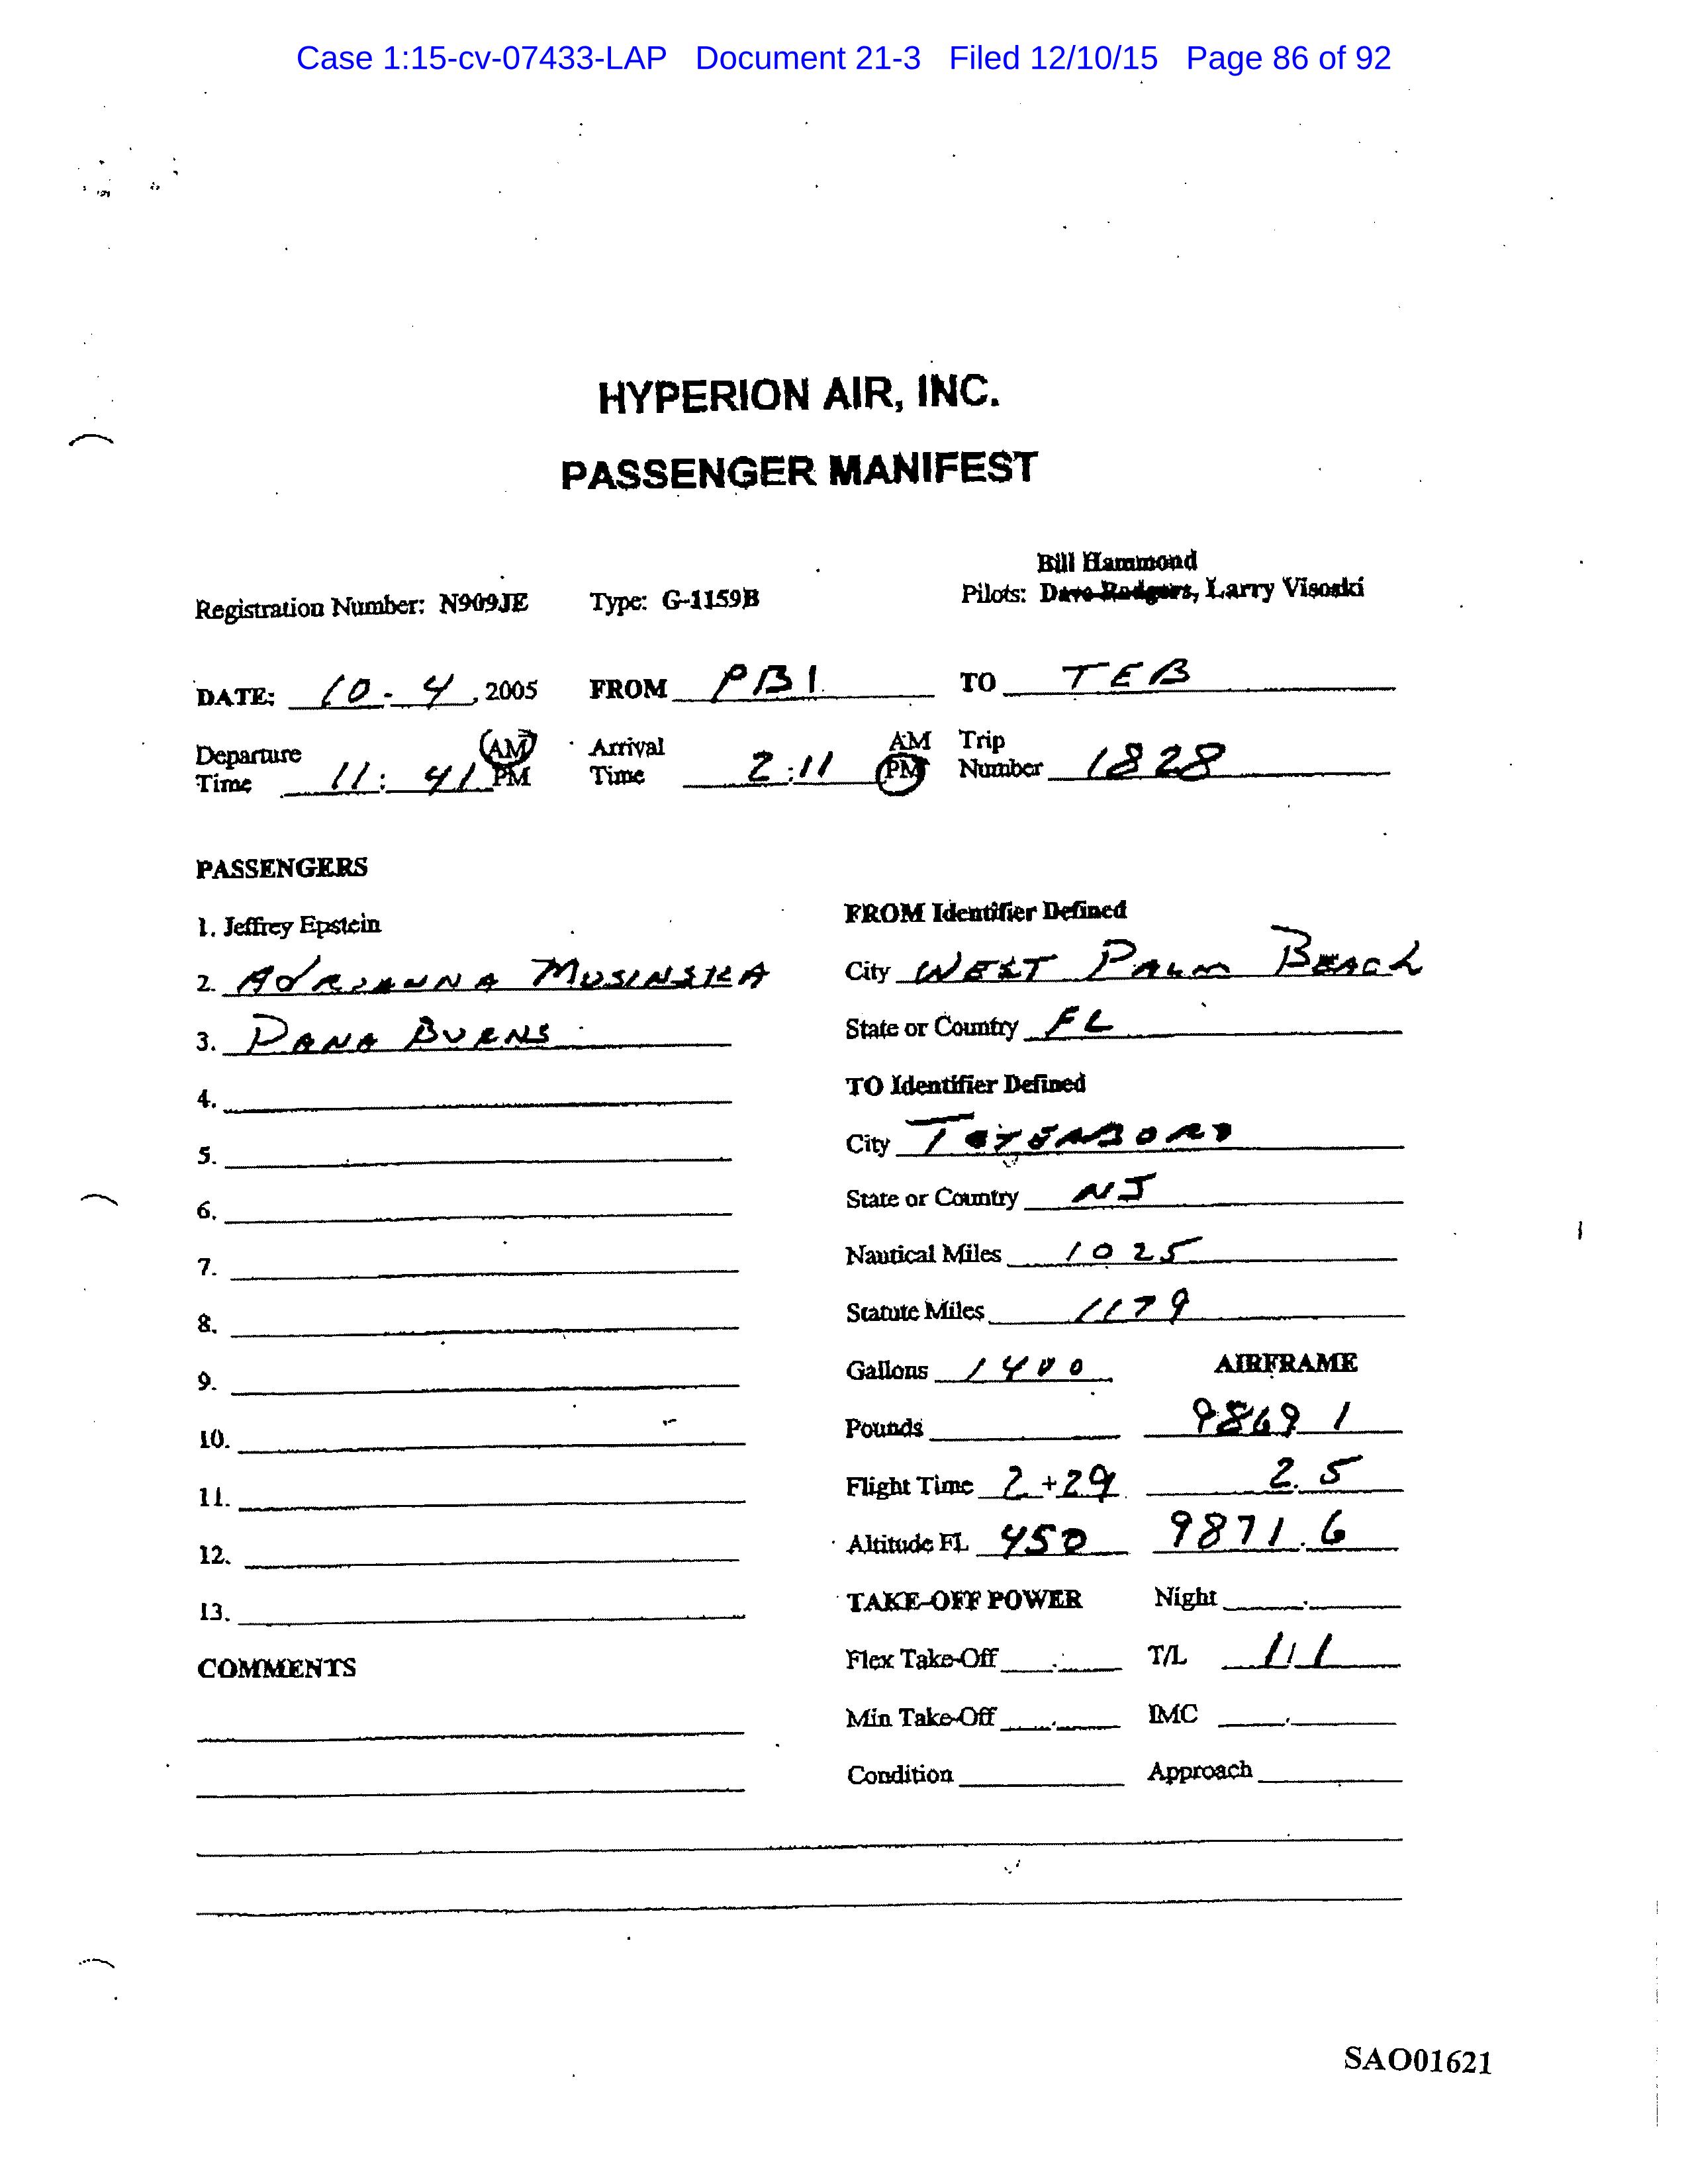 Case 1:15-cv-07433-LAP Document 21-3 Filed 12/10/15 Page 86 of 92
HYPERION AIR, INC.
PASSENGER MANIFEST
Bill Hammond
Registration Number: N909JE Type: G-1159B Pilots: Dave Rodgers, Larry Visoski
DATE: 10-4, 2005 FROM PBI TO TEB
Departure Time 11:41 AM PM Arrival Time 2:11 AM PM Trip Number 1828
PASSENGERS
1. Jeffrey Epstein
2. ADRIANNA MUSINSKA
3. DANA BURNS
4.
5.
6.
7.
8.
9.
10.
11.
12.
13.
COMMENTS
FROM Identifier Defined
City WEST PALM BEACH
State or Country FL
TO Identifier Defined
City TETERBORO
State or Country NJ
Nautical Miles 1025
Statute Miles 1179
Gallons 1400 AIRFRAME
Pounds 9869 1
Flight Time 2+29 2.5
Altitude FL 450 9871.6
TAKE-OFF POWER Night
Flex Take-Off T/L 1/1
Min Take-Off IMC
Condition Approach
SAO01621